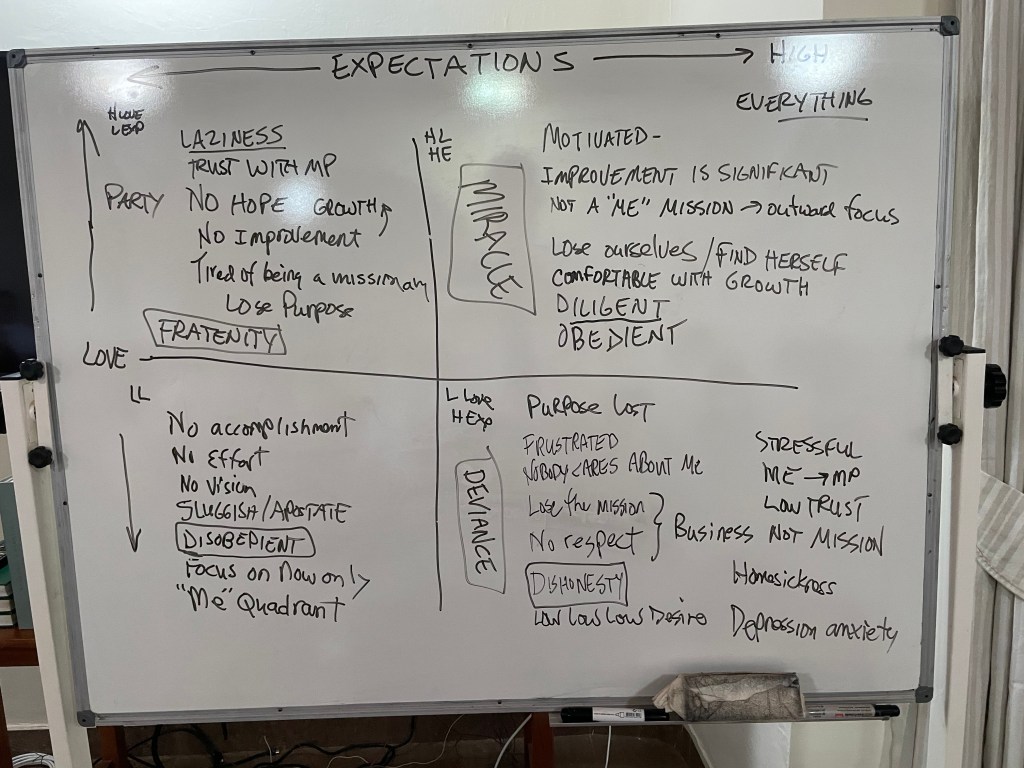 EXPECTATIONS
HIGH
EVERYTHING
H LOVE
L EXP
LAZINESS
TRUST WITH MP
PARTY
NO HOPE GROWTH
No Improvement
Tired of being a missionary
Lose Purpose
FRATENITY
HL
HE
MIRACLE
MOTIVATED -
IMPROVEMENT IS SIGNIFICANT
NOT A "ME" MISSION → outward focus
Lose ourselves / FIND HERSELF
COMFORTABLE WITH GROWTH
DILIGENT
OBEDIENT
LOVE
LL
No accomplishment
No Effort
No Vision
SLUGGISH/APOSTATE
DISOBEDIENT
Focus on Now only
"Me" Quadrant
L LOVE
H EXP
DEVIANCE
PURPOSE LOST
FRUSTRATED
NOBODY CARES ABOUT ME
Lose the mission
No respect
Business NOT MISSION
DISHONESTY
Low Low Low Desire
STRESSFUL
ME → MP
LOW TRUST
Homesickness
Depression anxiety